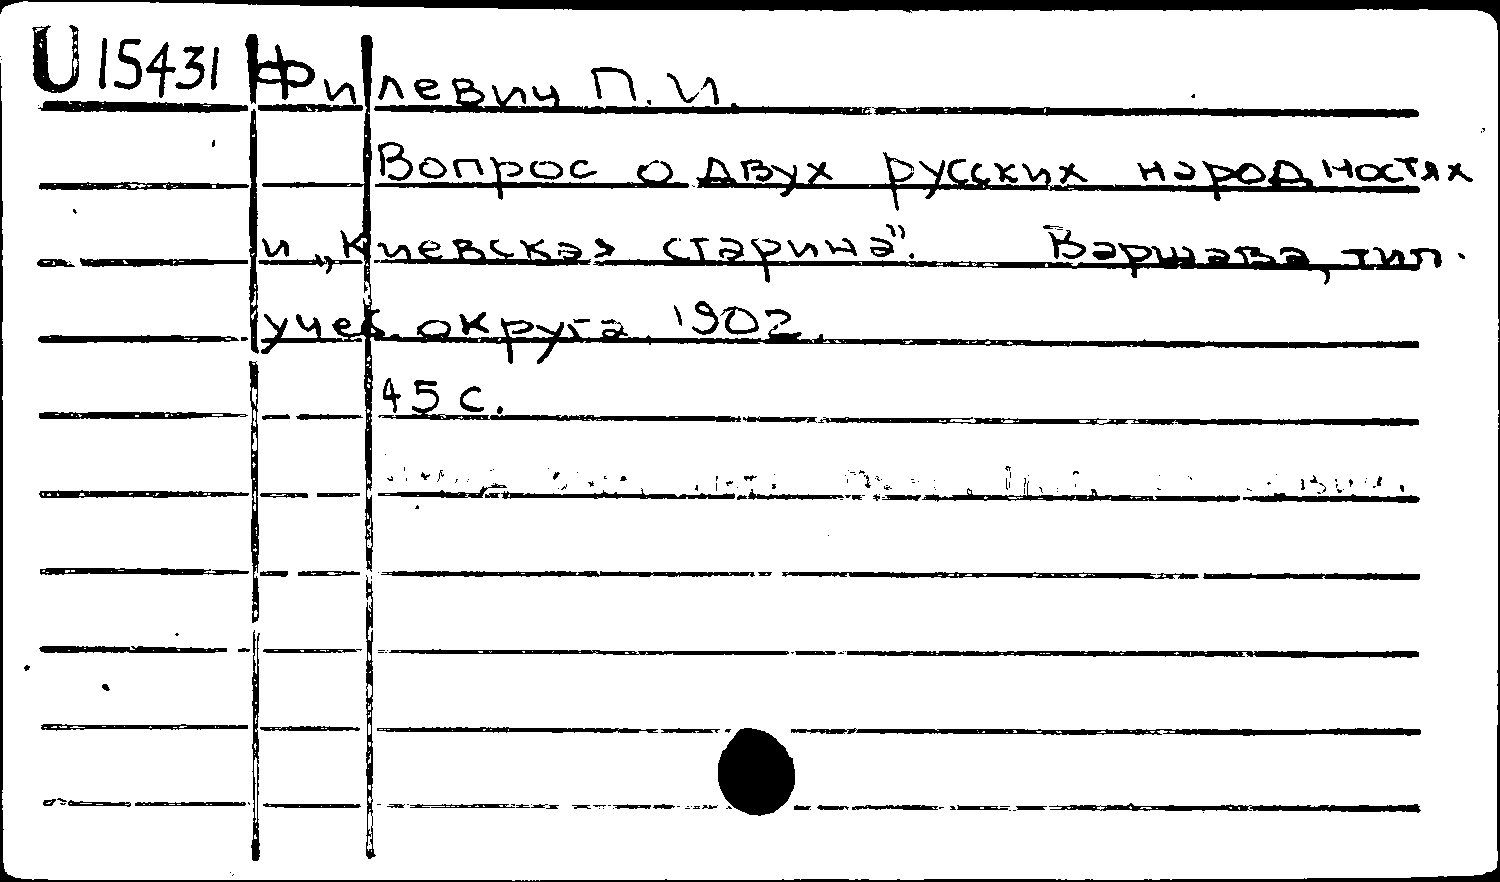 U 15431 Филевич П. И.
Вопрос о двух русских народностях
и „Киевская старина". Варшава, тип.
учеб. округа, 1902.
45 с.